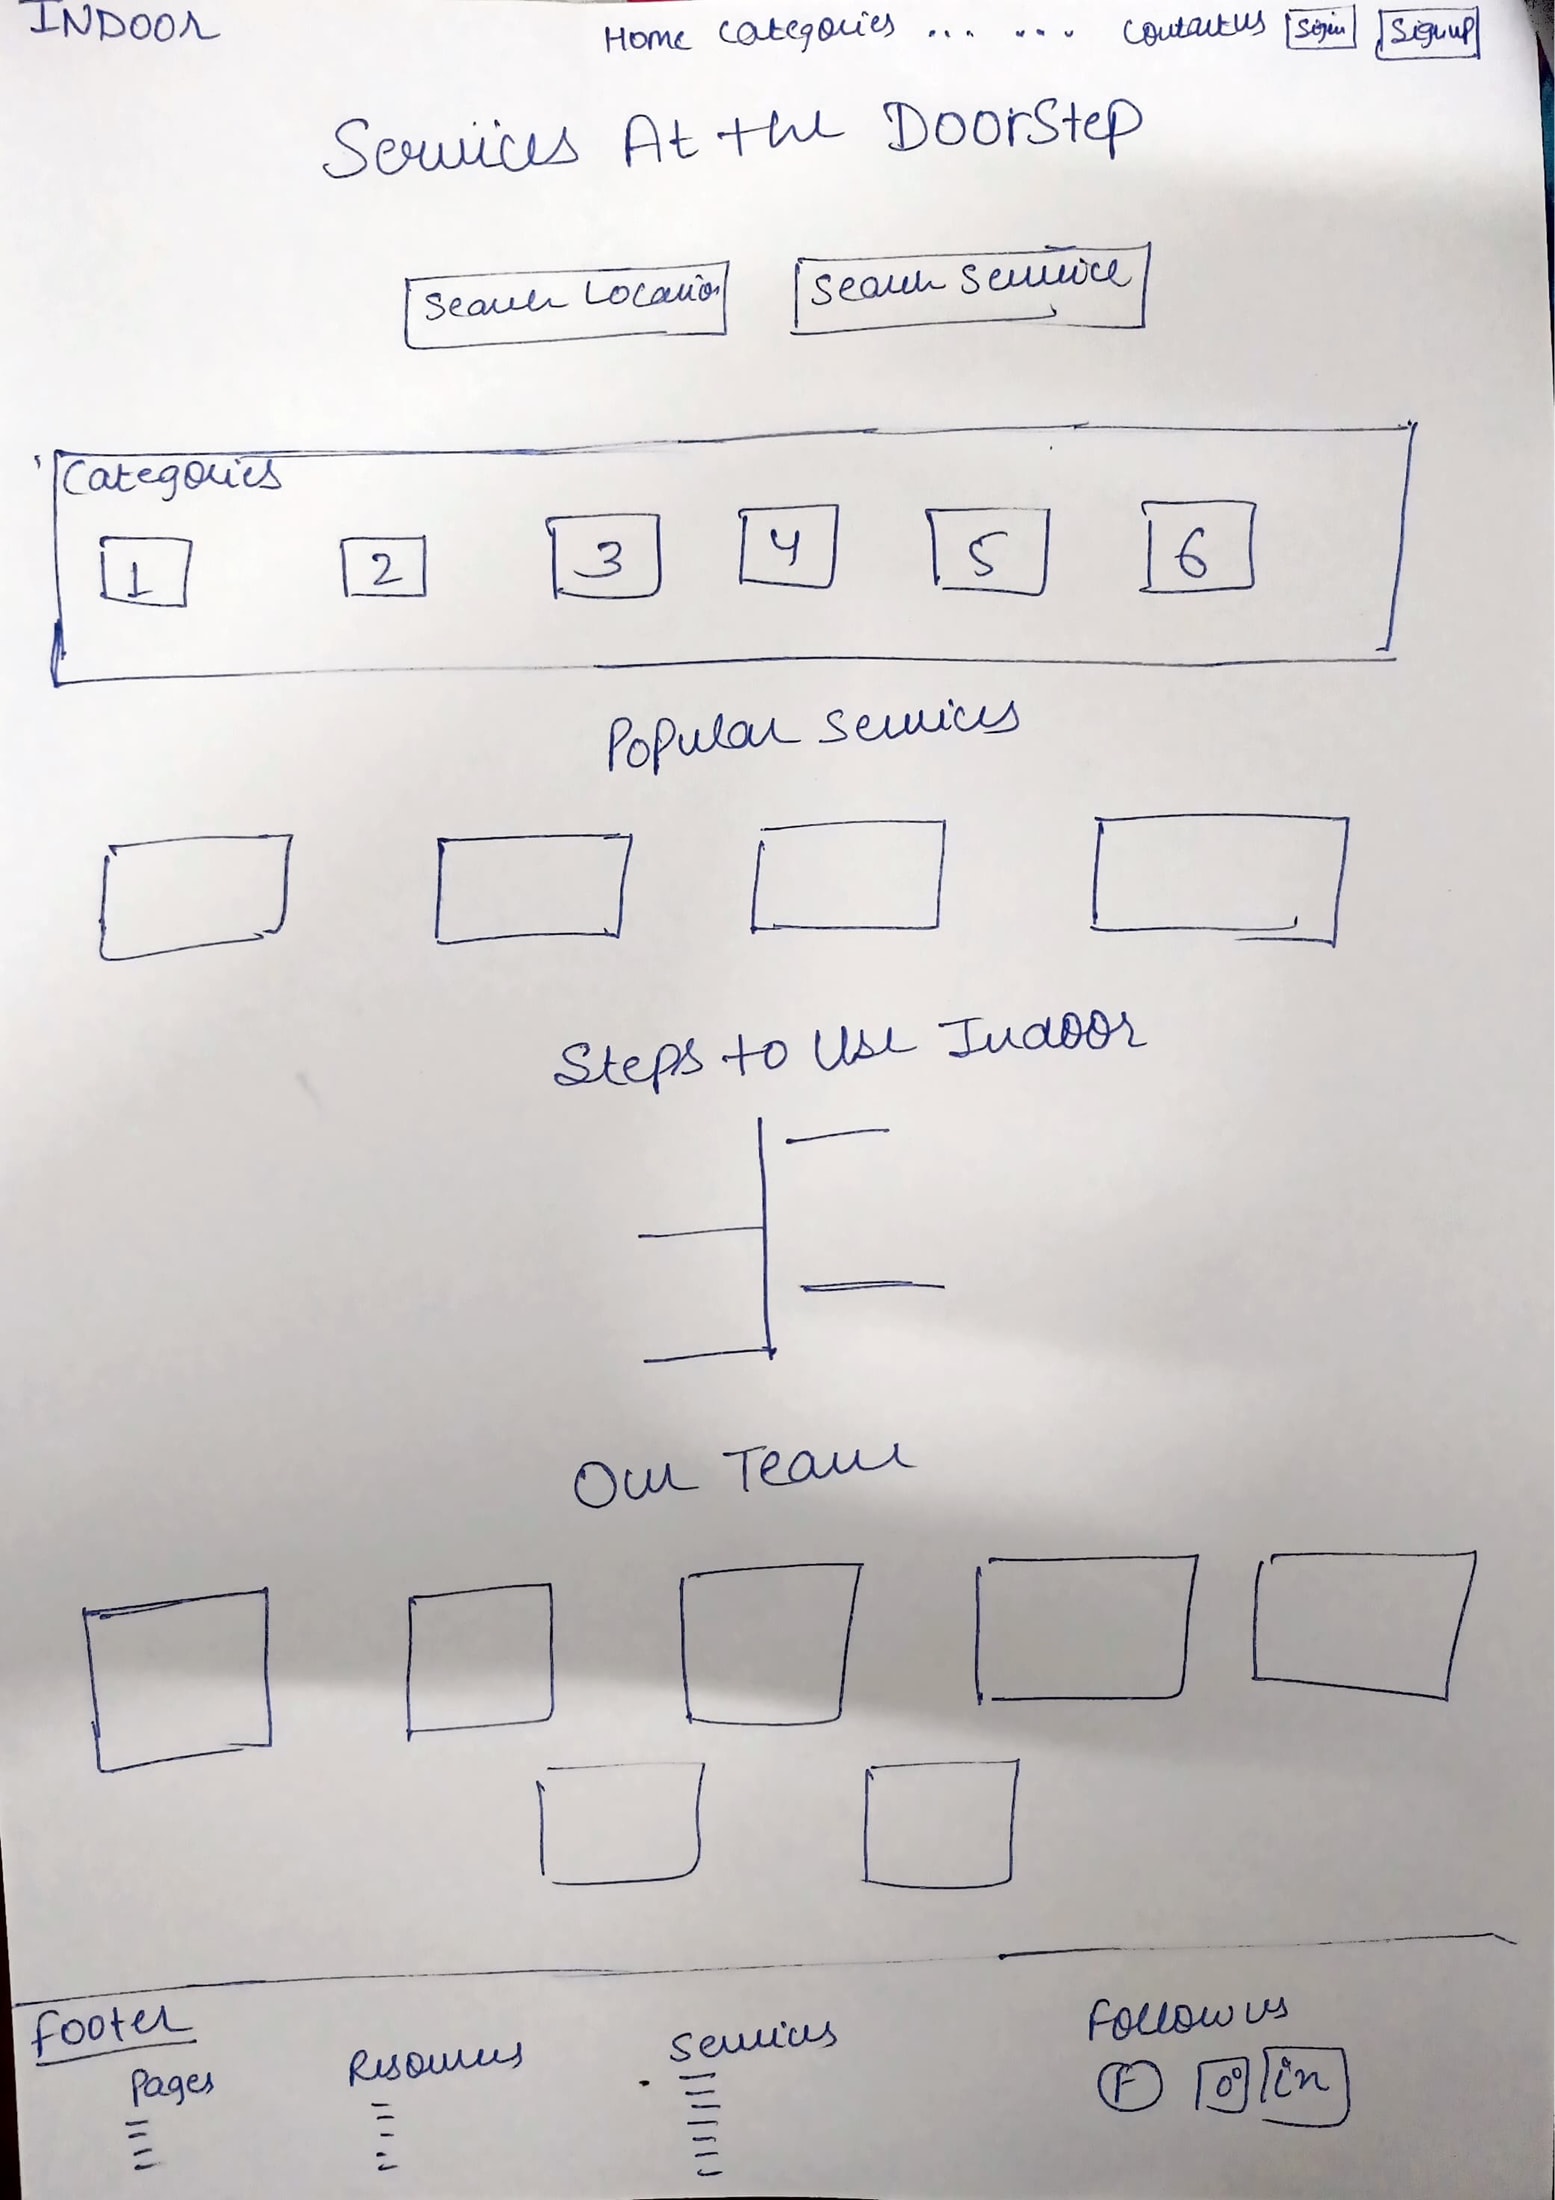 INDOOR
Home Categories ... ... Contact us Sign in Sign up
Services At the DoorStep
Search Location Search Service
Categories
1 2 3 4 5 6
Popular Services
Steps to Use Indoor
Our Team
Footer
Pages Resources Services Follow us
F in